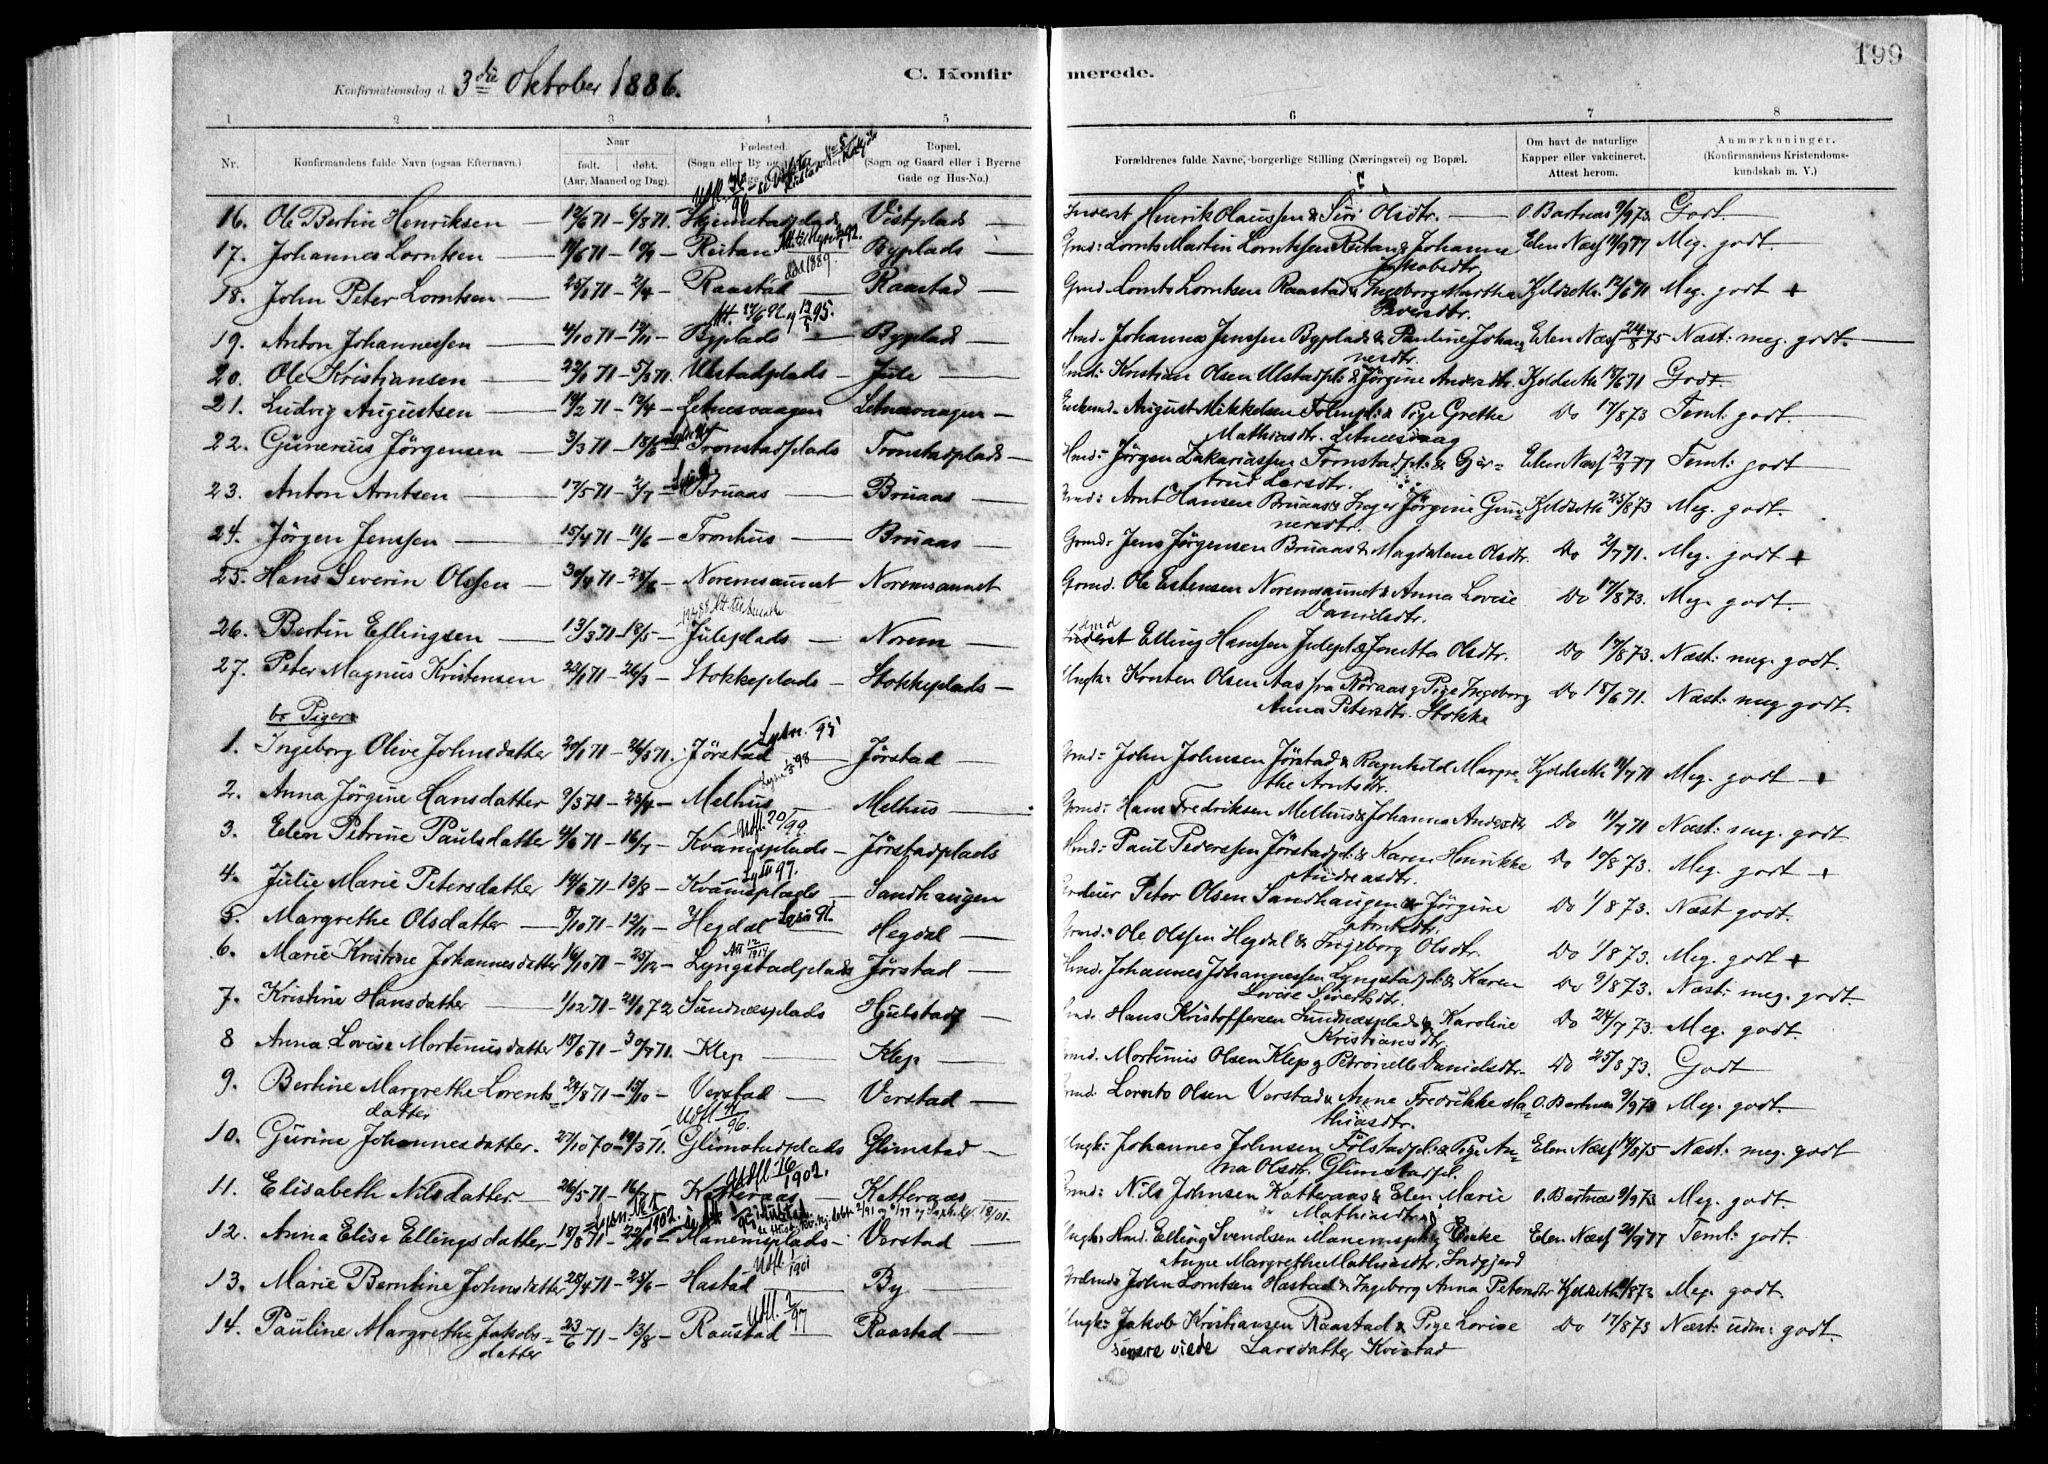 199
Konfirmationsdag d. 3die Oktober 1886.
C. Konfirmerede.
1 2 3 4 5 6 7 8
Nr. Konfirmandens fulde Navn (ogsaa Efternavn.) Naar født. døbt. (Aar, Maaned og Dag). Fødested. (Sogn eller By Bopæl. (Sogn og Gaard eller i Byerne Gade og Hus-No.) Forældrenes fulde Navne, borgerlige Stilling (Næringsvei) og Bopæl. Om havt de naturlige Kopper eller vakcineret. Attest herom. Anmærkninger. (Konfirmandens Kristendomskundskab m. V.)
16. Ole Bertin Henriksen Vistplads Inderst Henrik Olaussen & Siri Olsdtr. O. Bartnæs 9/9 73 Godt
17. Johannes Lorntsen Reitan Byplads Lornts Martin Lorntssen Reitan & Johanna Jakobsdtr. Elen Næss Meg. godt
død 1889
18. John Peter Lorntsen 25/1 71 - 2/4 Raastad Raastad Lornts Lorntsen Raastad & Ingeborg Martha Kjeldseth 12/6 71 Meg. godt +
19. Anton Johannessen 4/10 71 Byplads Byplads Johannes Jenssen Byplads & Pauline Johannesdtr. Elen Næss 24/8 75 Næst: meg. godt
20. Ole Kristiansen 22/1 71 Ulstadplads Jule Kristian Olsen Ulstadpl: & Jørgine Andersdtr. Kjeldseth Godt
21. Ludvig Augustsen Letnesvaagen Letnesvaagen August Mikkelsen & Pige Grethe Mathiasdtr. Letnæsvaag Do 17/8 73 Teml: godt
22. Gunerius Jørgensen 3/3 71 - 18/6 Tronstadplads Tronstadplads Jørgen Zakariassen & Gjertrud Larsdtr. Elen Næss Teml: godt
23. Anton Arntsen 17/5 71 - 2/7 Bruaas Bruaas Arnt Hansen Bruaas & Inger Jørgine Gunnersdtr. Kjeldseth 25/8 73 Meg. godt
24. Jørgen Jenssen 15/4 71 - 11/6 Tronhus Bruaas Jens Jørgensen Bruaas & Magdalene Olsdtr. Do 2/7 71. Meg. godt +
25. Hans Severin Olssen 30/4 71 - 25/6 Noremsaunet Noremsaunet Ole Estensen Noremsaunet & Anna Lovise Danielsdtr. Do 17/8 73. Meg. godt.
26. Bertin Ellingsen 13/3 71 - 18/5 Juleplads Norem Elling Hanssen Julepl & Jonetta Olsdtr. Do 17/8 73. Næst: meg. godt.
27. Peter Magnus Kristensen 22/1 71 - 26/3 Stokkeplads Stokkeplads Ungk: Olsen Aas fra Røraas & Pige Ingeborg Anna Petersdtr. Stokke Do 18/6 71. Næst: meg godt.
b. Piger
1. Ingeborg Olive Johnsdatter 20/1 71 - 26/3 71. Jørstad Jørstad John Johnsen Jørstad & Ragnhild Margrethe Arntsdtr. Kjeldseth 11/7 71 Meg. godt +
2. Anna Jørgine Hansdatter 9/3 71 - 23/4 Melhus Melhus Hans Fredriksen Melhus & Johanna Andersdtr Do 11/7 71 Næst: meg. godt
Udfl. 20/99.
3. Elen Petrine Paulsdatter 4/6 71 - 16/7 Kvamsplads Jørstadplads Paul Pederssen Jørstadpl: & Karen Henrikke Andreasdtr. Do 10/8 73. Meg. godt +
4. Julie Marie Petersdatter 14/6 71 - 13/8 Kvamsplads Sandhaugen Peter Olsen Sandhaugen & Jørgine Arntsdtr. Do 1/8 73. Næst godt.
5. Margrethe Olsdatter Hegdal Hegdal Ole Olssen Hegdal & Ingeborg Olsdtr. Do 1/8 73. Meg. godt +
6. Marie Kristine Johannesdatter 16/10 71 - 25/12 Lyngstadplads Jørstad Johannes Johannessen Lyngstadpl: & Karen Lovise Sivertsdtr. Do 9/8 73. Næst: meg. godt.
7. Kristine Hansdatter 1/12 71 - 21/1 72 Sundnæsplads Hjulstad Hans Kristoffersen Sundnæsplads & Karoline Kristiansdtr. Do 24/7 73. Meg. godt
8 Anna Lovise Mortinusdatter 18/6 71 - 30/7 71. Klep Klep Mortinus Olsen Klep & Petronelle Danielsdtr. Do 25/8 73. Godt
9. Bertine Margrethe Lorentsdatter 24/8 71 - 15/10 Verstad Verstad Lorents Olsen Verstad & Anne Fredrikke Mathiasdtr. O. Bartnæs 9/9 73 Meg. godt.
10. Gurine Johannesdatter. 27/10 70 - 19/3 71. Glimstadplads Glimstad Ungk: Johannes Johnsen Følstadpl: & Pige Anna Olsdtr. Glimstadpl. Elen Næss Næst: meg. godt
Udfl. 16/1902.
11. Elisabeth Nilsdatter 26/5 71 - 16/7 Katteraas Katteraas Nils Johnsen Katteraas & Elen Marie Mathiasdtr. O. Bartnæs 9/9 73 Meg. godt.
12. Anna Elise Ellingsdatter 18/8 71 - 22/10 Manemsplads Verstad Ungk: Elling Svendsen Manemspl & Enke Anne Margrethe Mathiasdtr. Indgjerd Elen Næss 21/9 77 Teml: godt.
Udfl. 1/1901
13. Marie Berntine Johnsdatter 28/4 71 - 25/6 Hastad By John Lorntsen Hastad & Ingeborg Anna Petersdtr Kjeldseth Meg. godt.
Udfl. 2/97
14. Pauline Margrethe Jakobsdatter 23/6 71 - 13/8 Raastad Raastad Ungk: Jakob Kristiansen Raastad & Pige Lovise Larsdatter Kvistad Do 17/8 73 Næst: udm: godt.
senere viede